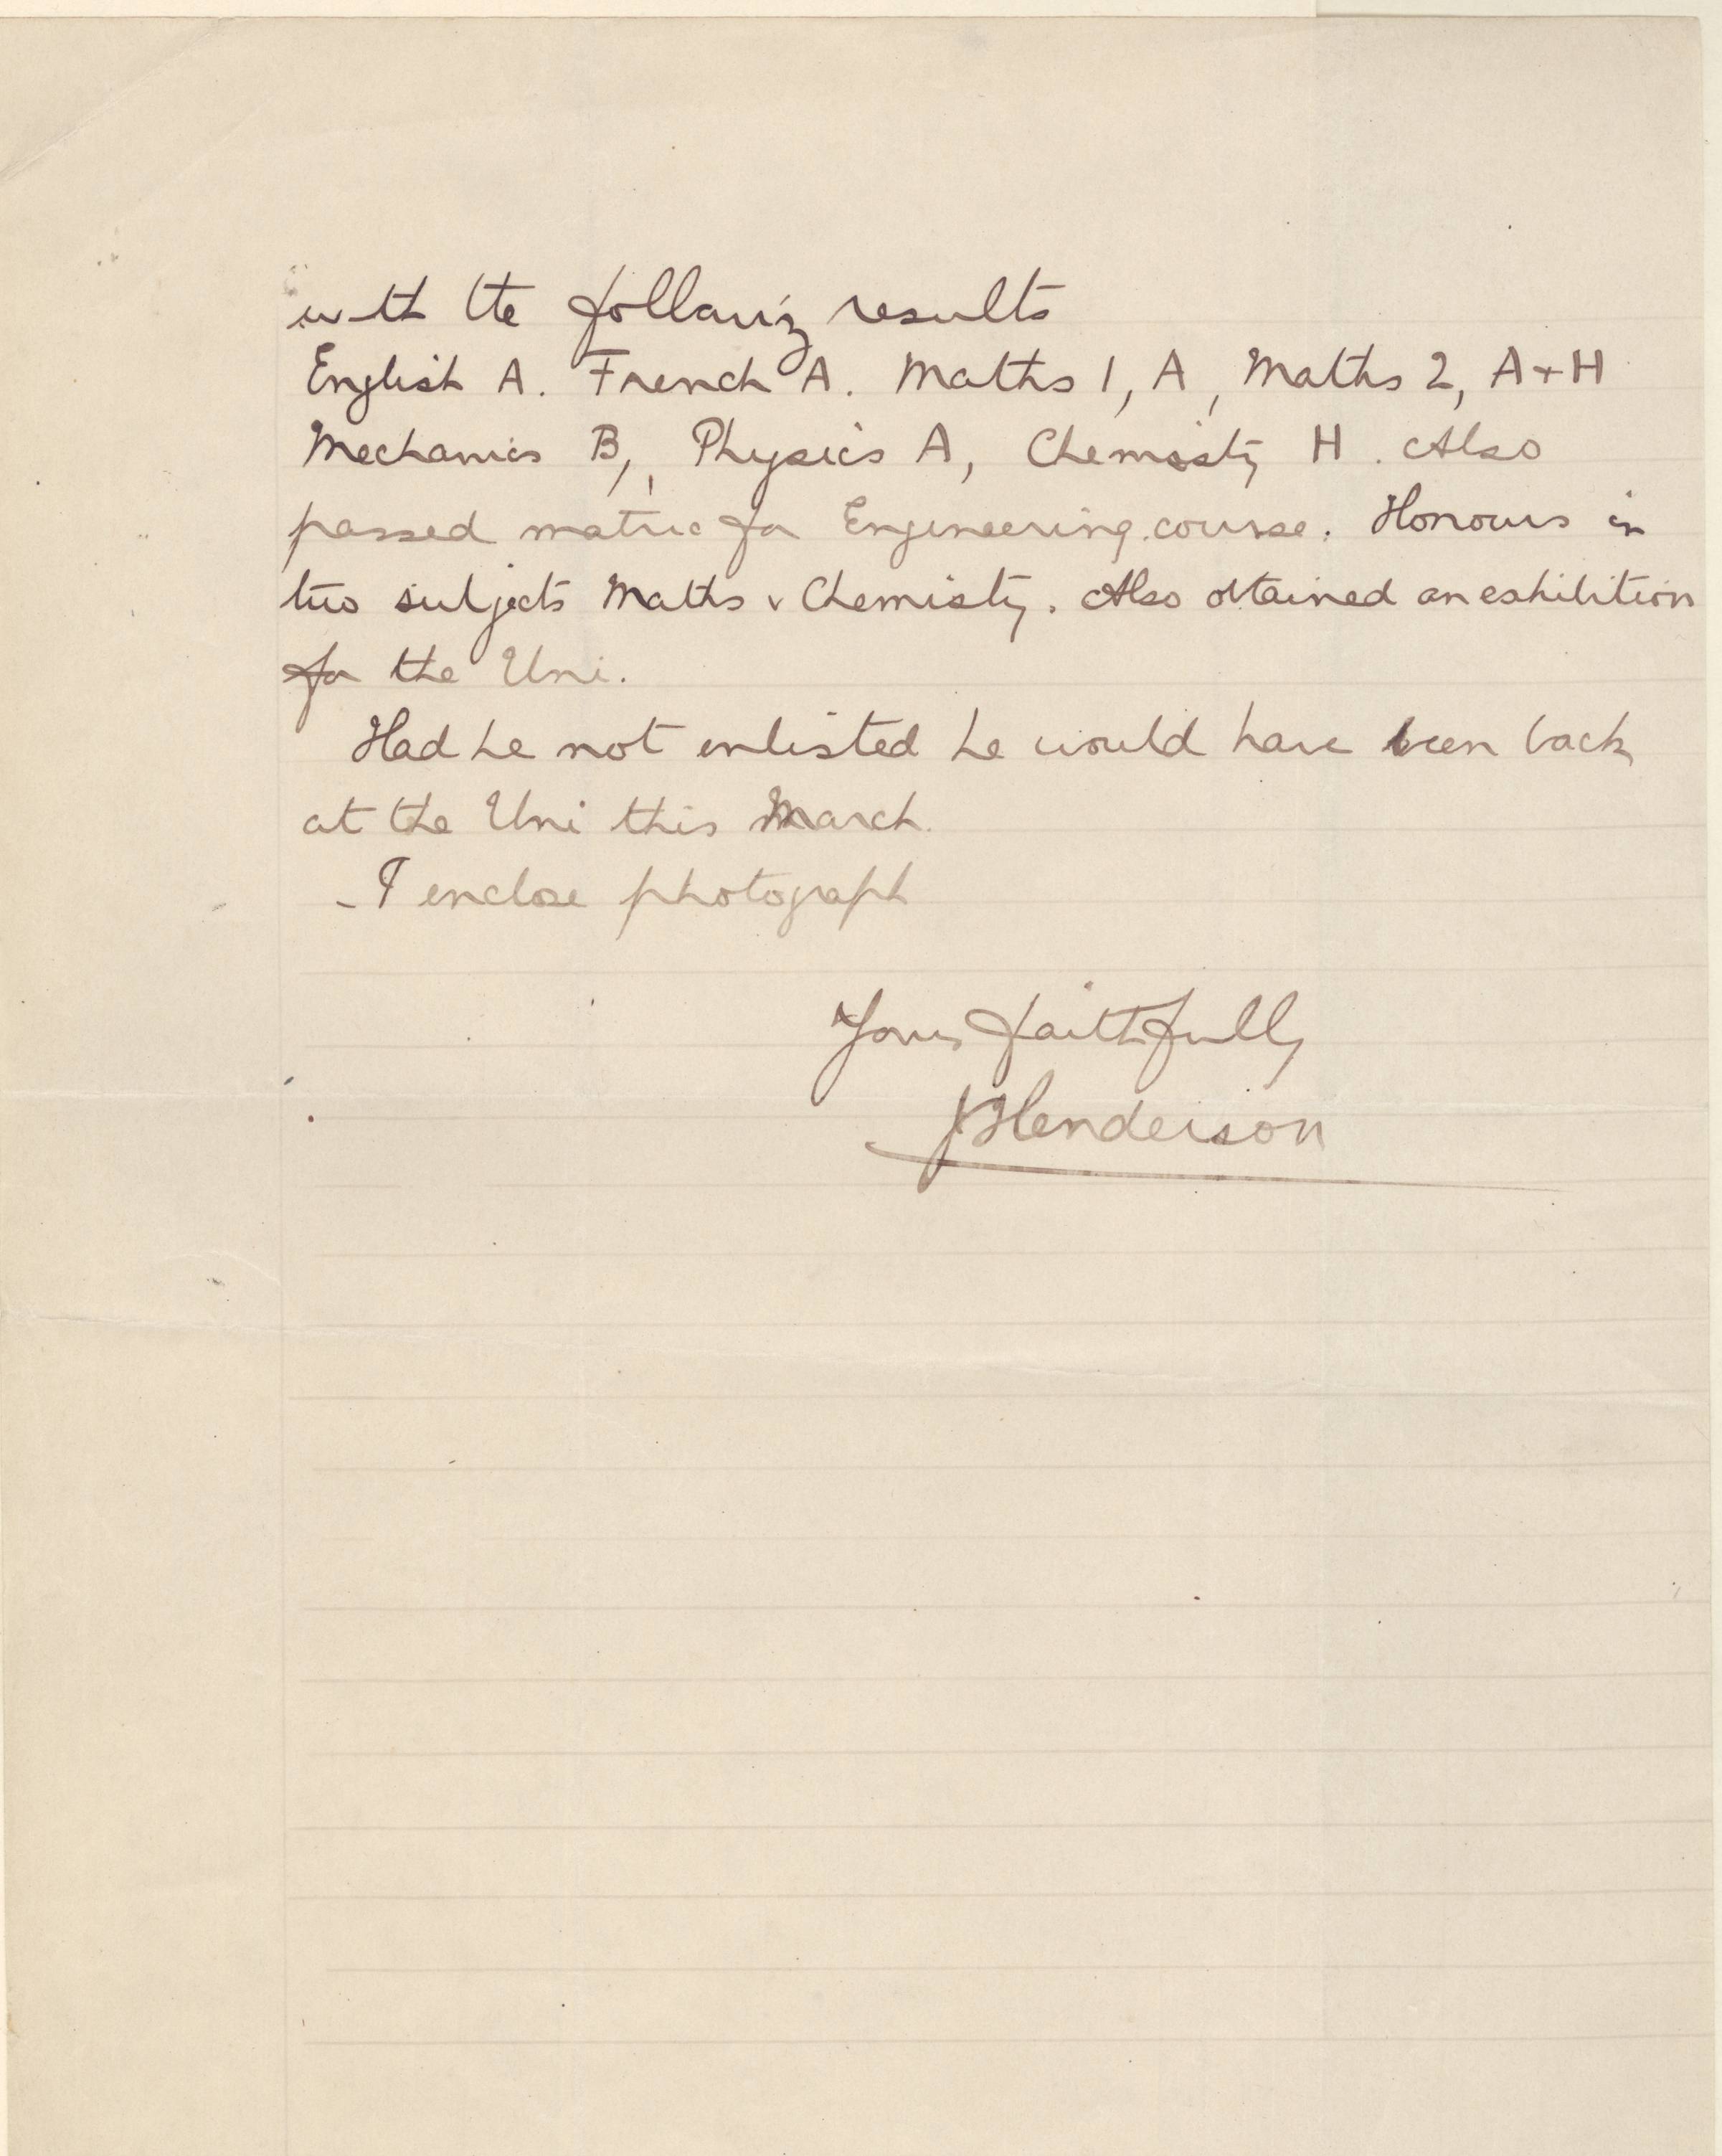 with the following results
English A. French A. Maths 1, A, Maths 2, A + H
Mechanics B, Physics A, Chemistry H. Also
passed matric for Engineering course. Honours in
two subjects Maths & Chemistry. Also obtained an exhibition
for the Uni.
Had he not enlisted he would have been back
at the Uni this March.
- I enclose photograph
Yours faithfully
J Henderson